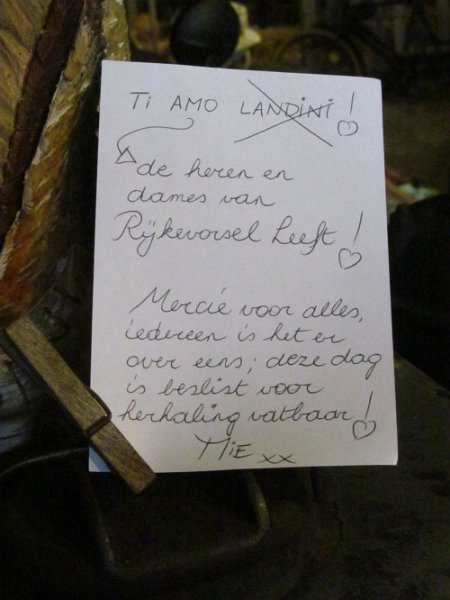 Ti AMO LANDiNi!
de heren en
dames van
Rijkevorsel Leeft!
Mercie voor alles,
iedereen is het er
over eens; deze dag
is beslist voor
herhaling vatbaar!
MiE xx